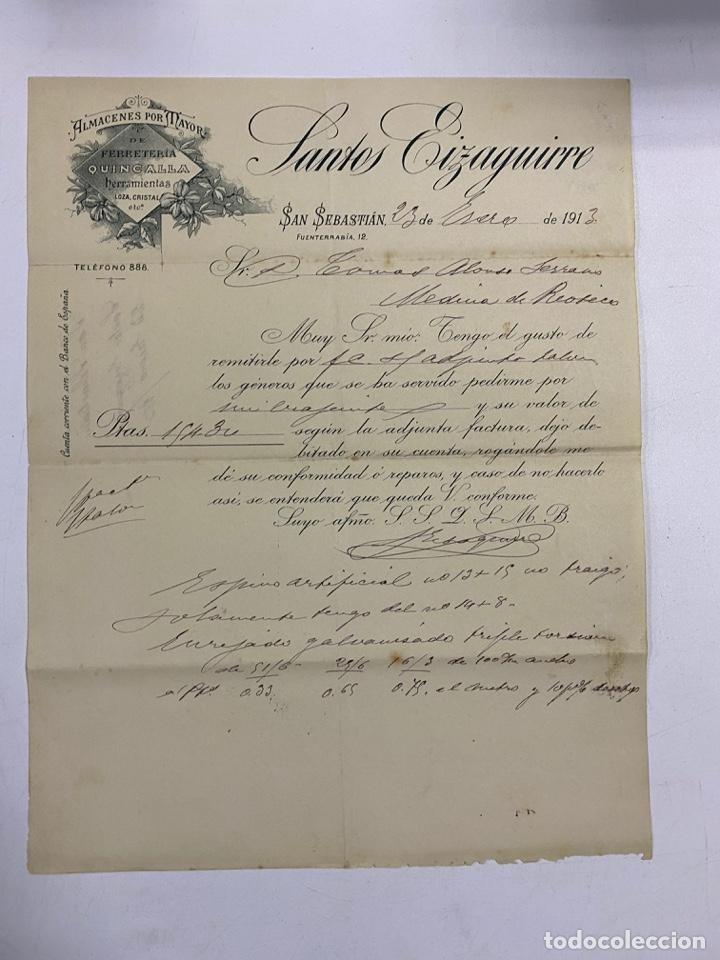 ALMACENES POR MAYOR
DE
FERRETERÍA
QUINCALLA
herramientas
LOZA, CRISTAL,
etc.ª
TELÉFONO 886.
Cuenta corriente con el Banco de España.
Santos Eizaguirre
SAN SEBASTIÁN, 23 de Enero de 1913
FUENTERRABÍA, 12.
Sr. D. Tomas Alonso Serrano
Medina de Rioseco
Muy Sr. mio: Tengo el gusto de
remitirle por f.c. adjunto talon
los géneros que se ha servido pedirme por
y su valor de
Ptas. según la adjunta factura, dejo de-
bitado en su cuenta, rogándole me
dé su conformidad ó reparos, y caso de no hacerlo
así, se entenderá que queda V. conforme.
Suyo afmo. S. S. Q. S. M. B.
Espino artificial nº 13 + 15 no traigo,
solamente tengo del nº 14 + 8-
Enrejado galvanisado triple torsion
de 51/6 - 25/6 16/3 de 100 ancho
0.33 0.65 0.75 el metro y 10 p%
todocoleccion
todocoleccion.net